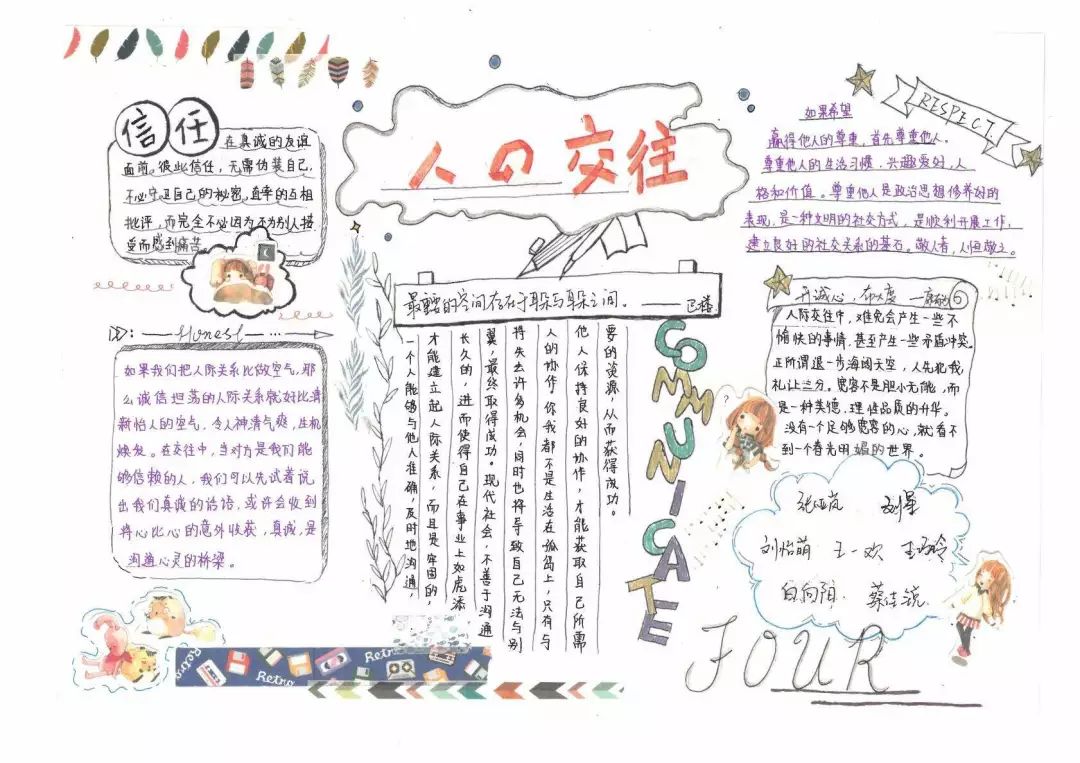 人の交往
信任
在真诚的友谊
面前,彼此信任,无需伪装自己,
不必守自己的秘密,直率的互相
批评,而完全不必因为不为别人接
受而感到痛苦。
Honest
如果我们把人际关系比做空气,那
么诚信坦荡的人际关系就好比清
新怡人的空气,令人神清气爽,生机
焕发。在交往中,当对方是我们能
够信赖的人,我们可以先试着说
出我们真诚的话语,或许会收到
将心比心的意外收获,真诚,是
沟通心灵的桥梁。
最的空间存在于耳朵与耳朵之间。——巴
一个人能够与他人准确,及时地沟通,
才能建立起人际关系,而且是牢固的,
长久的,进而使得自己在事业上如虎添
翼,最终取得成功。现代社会,不善于沟通
将失去许多机会,同时也将导致自己无法与别
人的协作。你我都不是生活在孤岛上,只有与
他人保持良好的协作,才能获取自己所需
要的资源,从而获得成功。
COMMUNICATE
RESPECT.
如果希望
赢得他人的尊重,首先尊重他人。
尊重他人的生活习惯、兴趣爱好,人
格和价值。尊重他人是政治思想修养好的
表现,是一种文明的社交方式,是顺利开展工作,
建立良好的社交关系的基石。敬人者,人恒敬之。
开诚心,布大度
人际交往中,难免会产生一些不
愉快的事情,甚至产生一些矛盾冲突。
正所谓退一步海阔天空,人先犯我,
礼让三分。宽容不是胆小无能,而
是一种美德,理性品质的升华。
没有一个足够宽容的心,就看不
到一个春光明媚的世界。
张亚岚 刘星
刘怡萌 王一欢
白向阳 蔡佳锐
FOUR
Retro
Retro
Retro